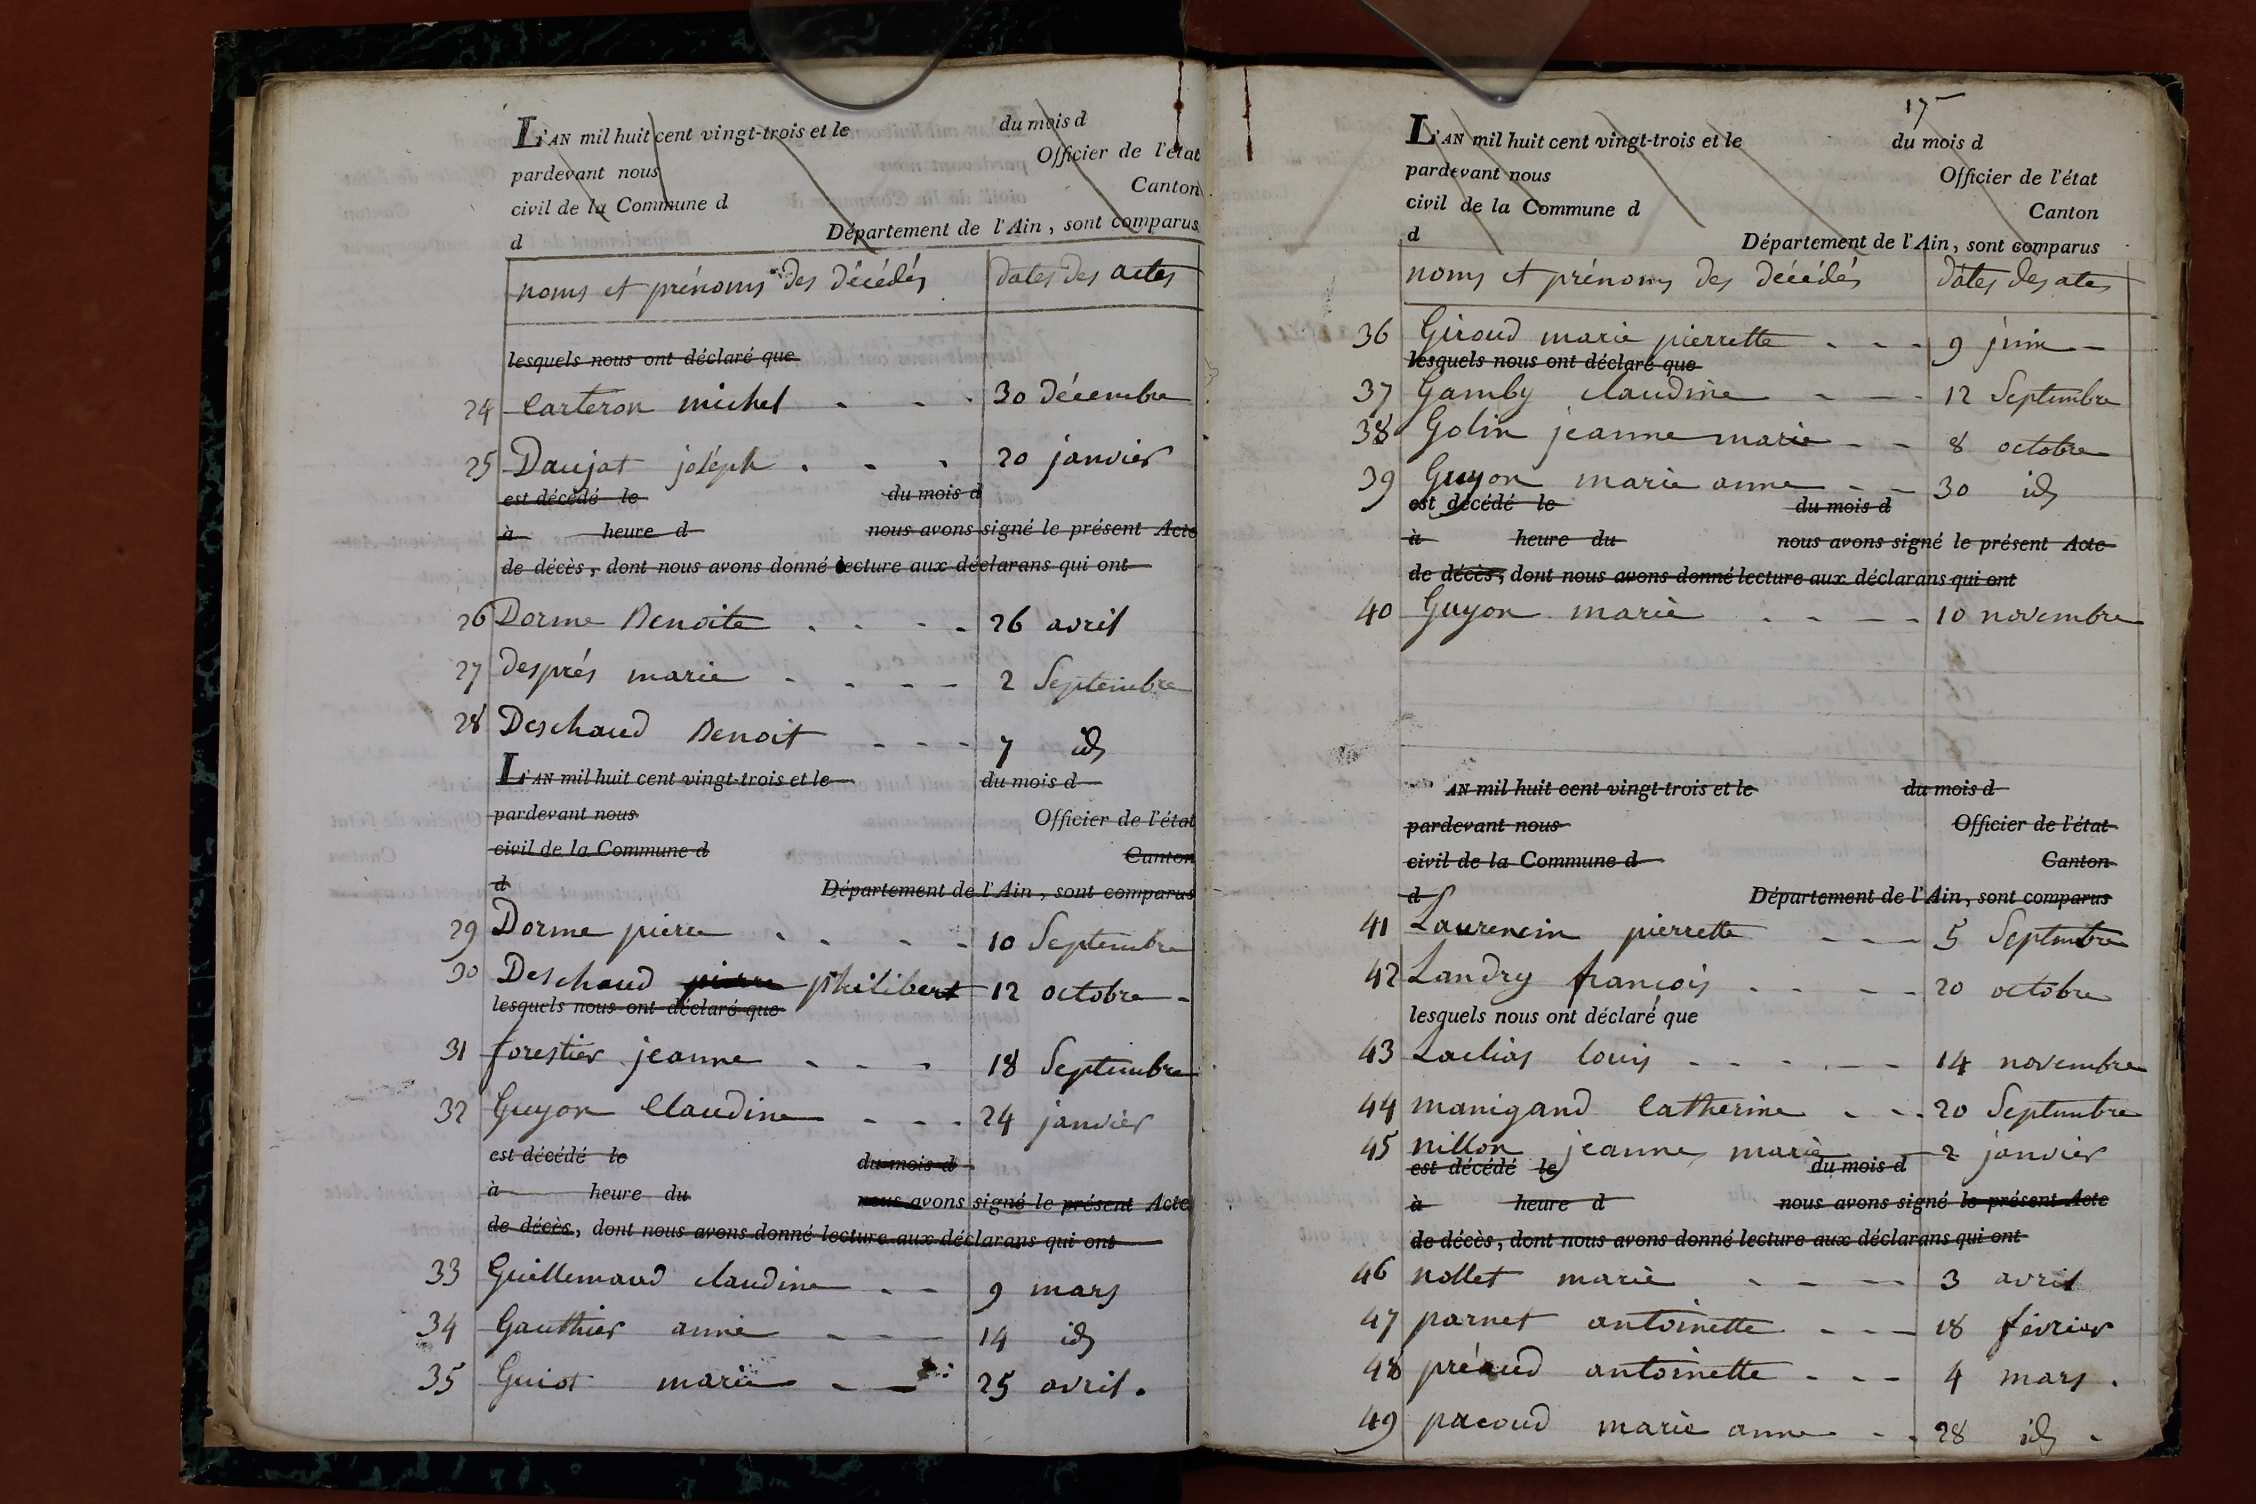 L'AN mil huit cent vingt-trois et le du mois d
pardevant nous Officier de l'état
civil de la Commune d Canton
d Département de l'Ain, sont comparus
noms et prénoms des décédés dates des actes
lesquels nous ont déclaré que
24 Carteron michel . . . 30 décembre
25 Daujat joseph . . . 20 janvier
est décédé le du mois d
à heure d nous avons signé le présent Acte
de décès, dont nous avons donné lecture aux déclarans qui ont
26 Dorme Benoite . . . . 26 avril
27 després marie . . . . 2 Septembre
28 Deschaud Benoit - - - 7 id
L'AN mil huit cent vingt-trois et le du mois d
pardevant nous Officier de l'état
civil de la Commune d Canton
d Département de l'Ain, sont comparus
29 Dorme pierre . . . . 10 Septembre
30 Deschaud pierre philibert 12 octobre -
lesquels nous ont déclaré que
31 forestier jeanne . . . 18 Septembre
32 Guyon Claudine - - - 24 janvier
est décédé le du mois d
à heure du nous avons signé le présent Acte
de décès, dont nous avons donné lecture aux déclarans qui ont
33 Guillemaud claudine - - 9 mars
34 Gauthier anne - - - 14 id
35 Guiot marie - - 25 avril.
17
L'AN mil huit cent vingt-trois et le du mois d
pardevant nous Officier de l'état
civil de la Commune d Canton
d Département de l'Ain, sont comparus
noms et prénoms des décédés dates des ates
36 Giroud marie pierrette . - - 9 juin -
lesquels nous ont déclaré que
37 Gamby claudine - - - 12 Septembre
38 Golin jeanne marie - - 8 octobre
39 Guyon marie anne - - 30 id
est décédé le du mois d
à heure du nous avons signé le présent Acte
de décès, dont nous avons donné lecture aux déclarans qui ont
40 Guyon marie . . - - . 10 novembre
AN mil huit cent vingt-trois et le du mois d
pardevant nous Officier de l'état
civil de la Commune d Canton
d Département de l'Ain, sont comparus
41 Laurencin pierrette - - - 5 Septmbre
42 Landry françois . . - - 20 octobre
lesquels nous ont déclaré que
43 Laclias louis - - - . - - 14 novembre
44 manigand Catherine - - . 20 Septembre
45 nillon jeanne marie - 2 janvier
est décédé le du mois d
à heure d nous avons signé le présent Acte
de décès, dont nous avons donné lecture aux déclarans qui ont
46 nollet marie - - - - 3 avril
47 parnet antoinette - - - 18 février
48 préaud antoinette - - - 4 mars .
49 pacoud marie anne - - 28 id -